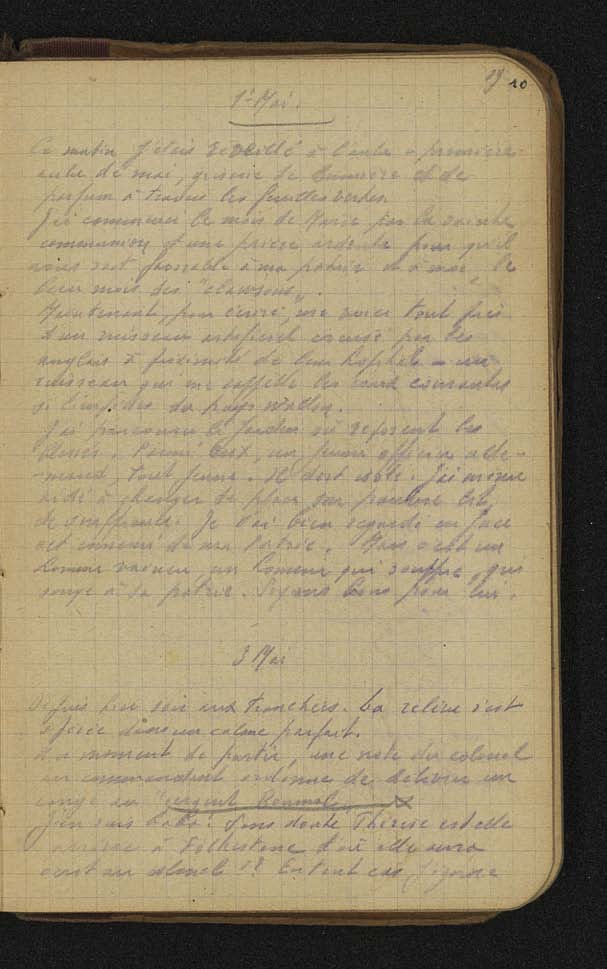 19 10
1r Mai.
Ce matin j'étais réveillé à l'aube - première
aube de mai, grisée de lumière et de
parfum à travers les feuilles vertes.
J'ai commencé le mois de Marie par la sainte
communion et une prière ardente pour qu'il
nous soit favorable à ma patrie et à moi, le
beau mois des "
Maintenant, pour écrire, me voici tout près
d'un ruisseau artificiel creusé par les
anglais à proximité de leur hôpital - un
ruisseau qui me rappelle les eaux courantes
si limpides du pays wallon.
J'ai parcouru le jardin où reposent les
blessés. Parmi eux, un jeune officier alle-
mand, tout jeune. Il dort isolé. J'ai même
aidé à changer de place son pauvre lit
de souffrance. Je l'ai bien regardé en face
cet ennemi de ma Patrie. Mais c'est un
homme vaincu un homme qui souffre, qui
songe à sa patrie. Soyons bons pour lui.
3 Mai
Depuis hier soir aux tranchées. La relève s'est
opérée dans un calme parfait.
Au moment de partir, une note du colonel
au commandant ordonne de délivrer un
congé au "sergent
J'en suis baba. Sans doute Thérèse est-elle
arrivée à Folkestone d'où elle aura
écrit au colonel !? En tout cas, j'ignore